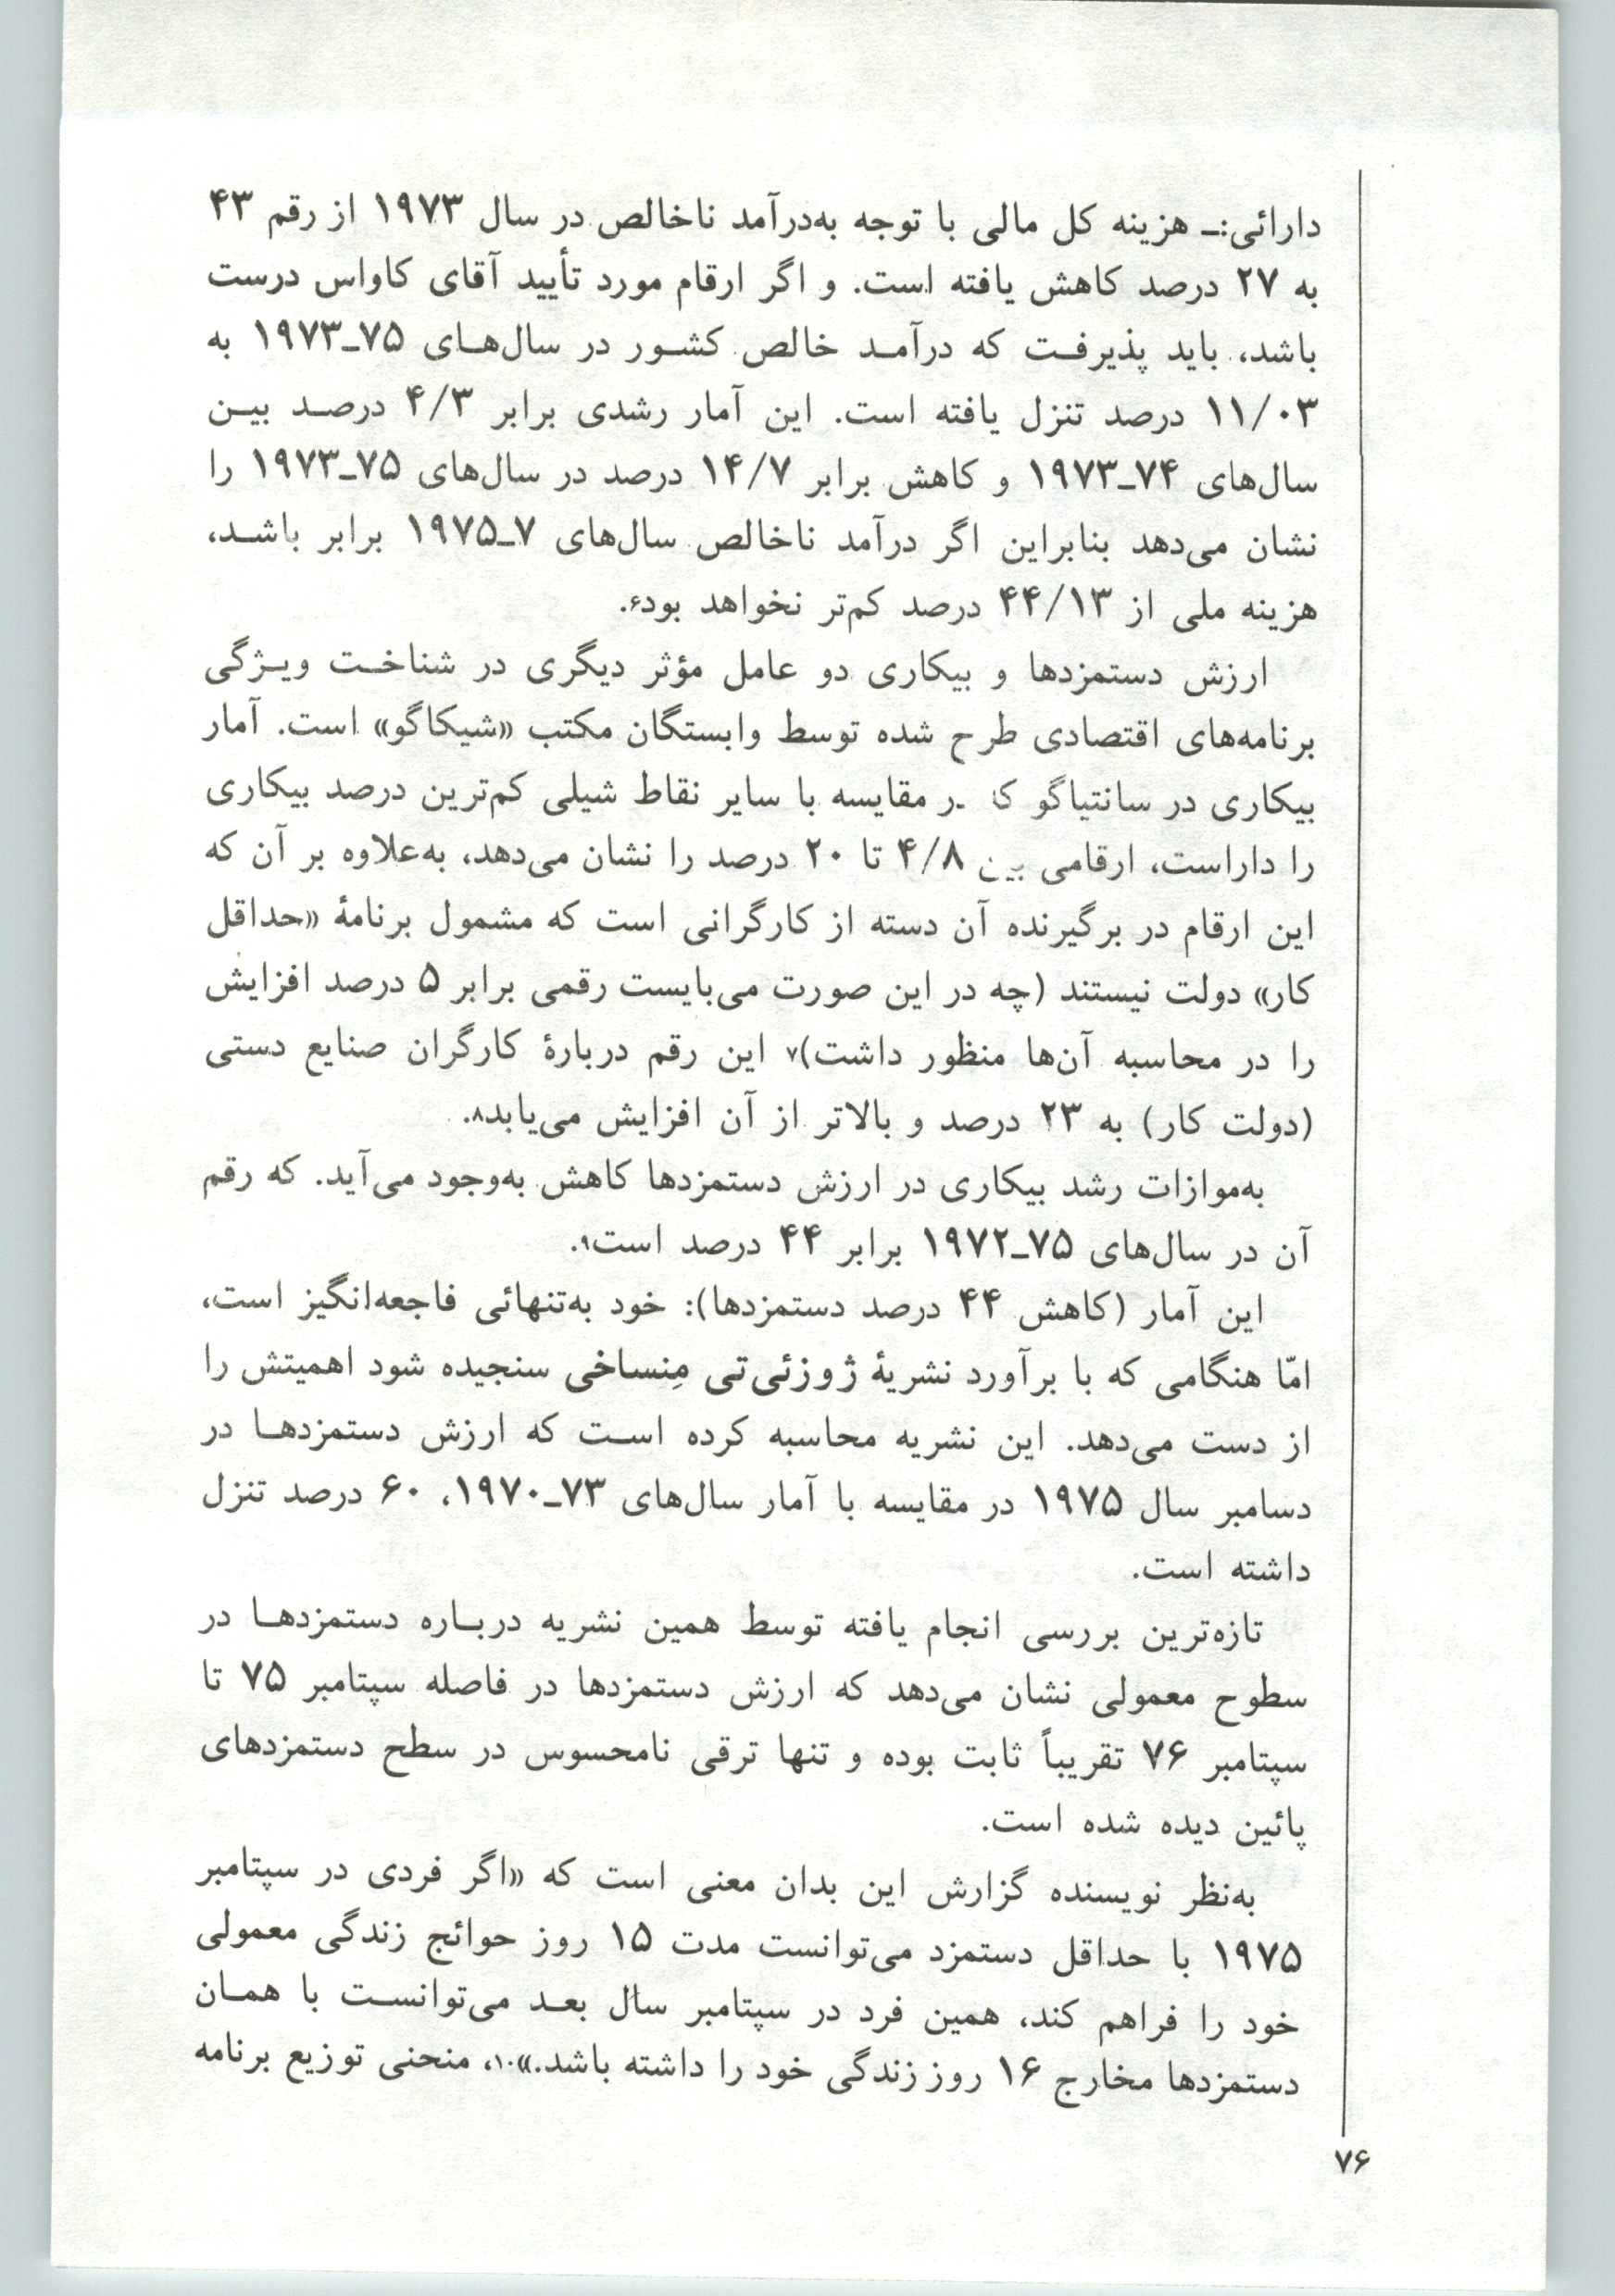 دارائی:ـ هزینه کل مالی با توجه به‌درآمد ناخالص در سال ۱۹۷۳ از رقم ۴۳
به ۲۷ درصد کاهش یافته است. و اگر ارقام مورد تأیید آقای کاواس درست
باشد، باید پذیرفت که درآمد خالص کشور در سال‌های ۷۵ـ۱۹۷۳ به
۱۱/۰۳ درصد تنزل یافته است. این آمار رشدی برابر ۴/۳ درصد بین
سال‌های ۷۴ـ۱۹۷۳ و کاهش برابر ۱۴/۷ درصد در سال‌های ۷۵ـ۱۹۷۳ را
نشان می‌دهد بنابراین اگر درآمد ناخالص سال‌های ۷ـ۱۹۷۵ برابر باشد،
هزینه ملی از ۴۴/۱۳ درصد کم‌تر نخواهد بود۶.
ارزش دستمزدها و بیکاری دو عامل مؤثر دیگری در شناخت ویژگی
برنامه‌های اقتصادی طرح شده توسط وابستگان مکتب «شیکاگو» است. آمار
بیکاری در سانتیاگو مقایسه با سایر نقاط شیلی کم‌ترین درصد بیکاری
را داراست، ارقامی بین ۴/۸ تا ۲۰ درصد را نشان می‌دهد، به‌علاوه بر آن که
این ارقام در برگیرنده آن دسته از کارگرانی است که مشمول برنامهٔ «حداقل
کار» دولت نیستند (چه در این صورت می‌بایست رقمی برابر ۵ درصد افزایش
را در محاسبه آن‌ها منظور داشت)۷ این رقم دربارهٔ کارگران صنایع دستی
(دولت کار) به ۲۳ درصد و بالاتر از آن افزایش می‌یابد۸.
به‌موازات رشد بیکاری در ارزش دستمزدها کاهش به‌وجود می‌آید. که رقم
آن در سال‌های ۷۵ـ۱۹۷۲ برابر ۴۴ درصد است۹.
این آمار (کاهش ۴۴ درصد دستمزدها): خود به‌تنهائی فاجعه‌انگیز است،
امّا هنگامی که با برآورد نشریهٔ ژوزئی‌تی مِنساخی سنجیده شود اهمیتش را
از دست می‌دهد. این نشریه محاسبه کرده است که ارزش دستمزدها در
دسامبر سال ۱۹۷۵ در مقایسه با آمار سال‌های ۷۳ـ۱۹۷۰، ۶۰ درصد تنزل
داشته است.
تازه‌ترین بررسی انجام یافته توسط همین نشریه درباره دستمزدها در
سطوح معمولی نشان می‌دهد که ارزش دستمزدها در فاصله سپتامبر ۷۵ تا
سپتامبر ۷۶ تقریباً ثابت بوده و تنها ترقی نامحسوس در سطح دستمزدهای
پائین دیده شده است.
به‌نظر نویسنده گزارش این بدان معنی است که «اگر فردی در سپتامبر
۱۹۷۵ با حداقل دستمزد می‌توانست مدت ۱۵ روز حوائج زندگی معمولی
خود را فراهم کند، همین فرد در سپتامبر سال بعد می‌توانست با همان
دستمزدها مخارج ۱۶ روز زندگی خود را داشته باشد.»۱۰، منحنی توزیع برنامه
۷۶